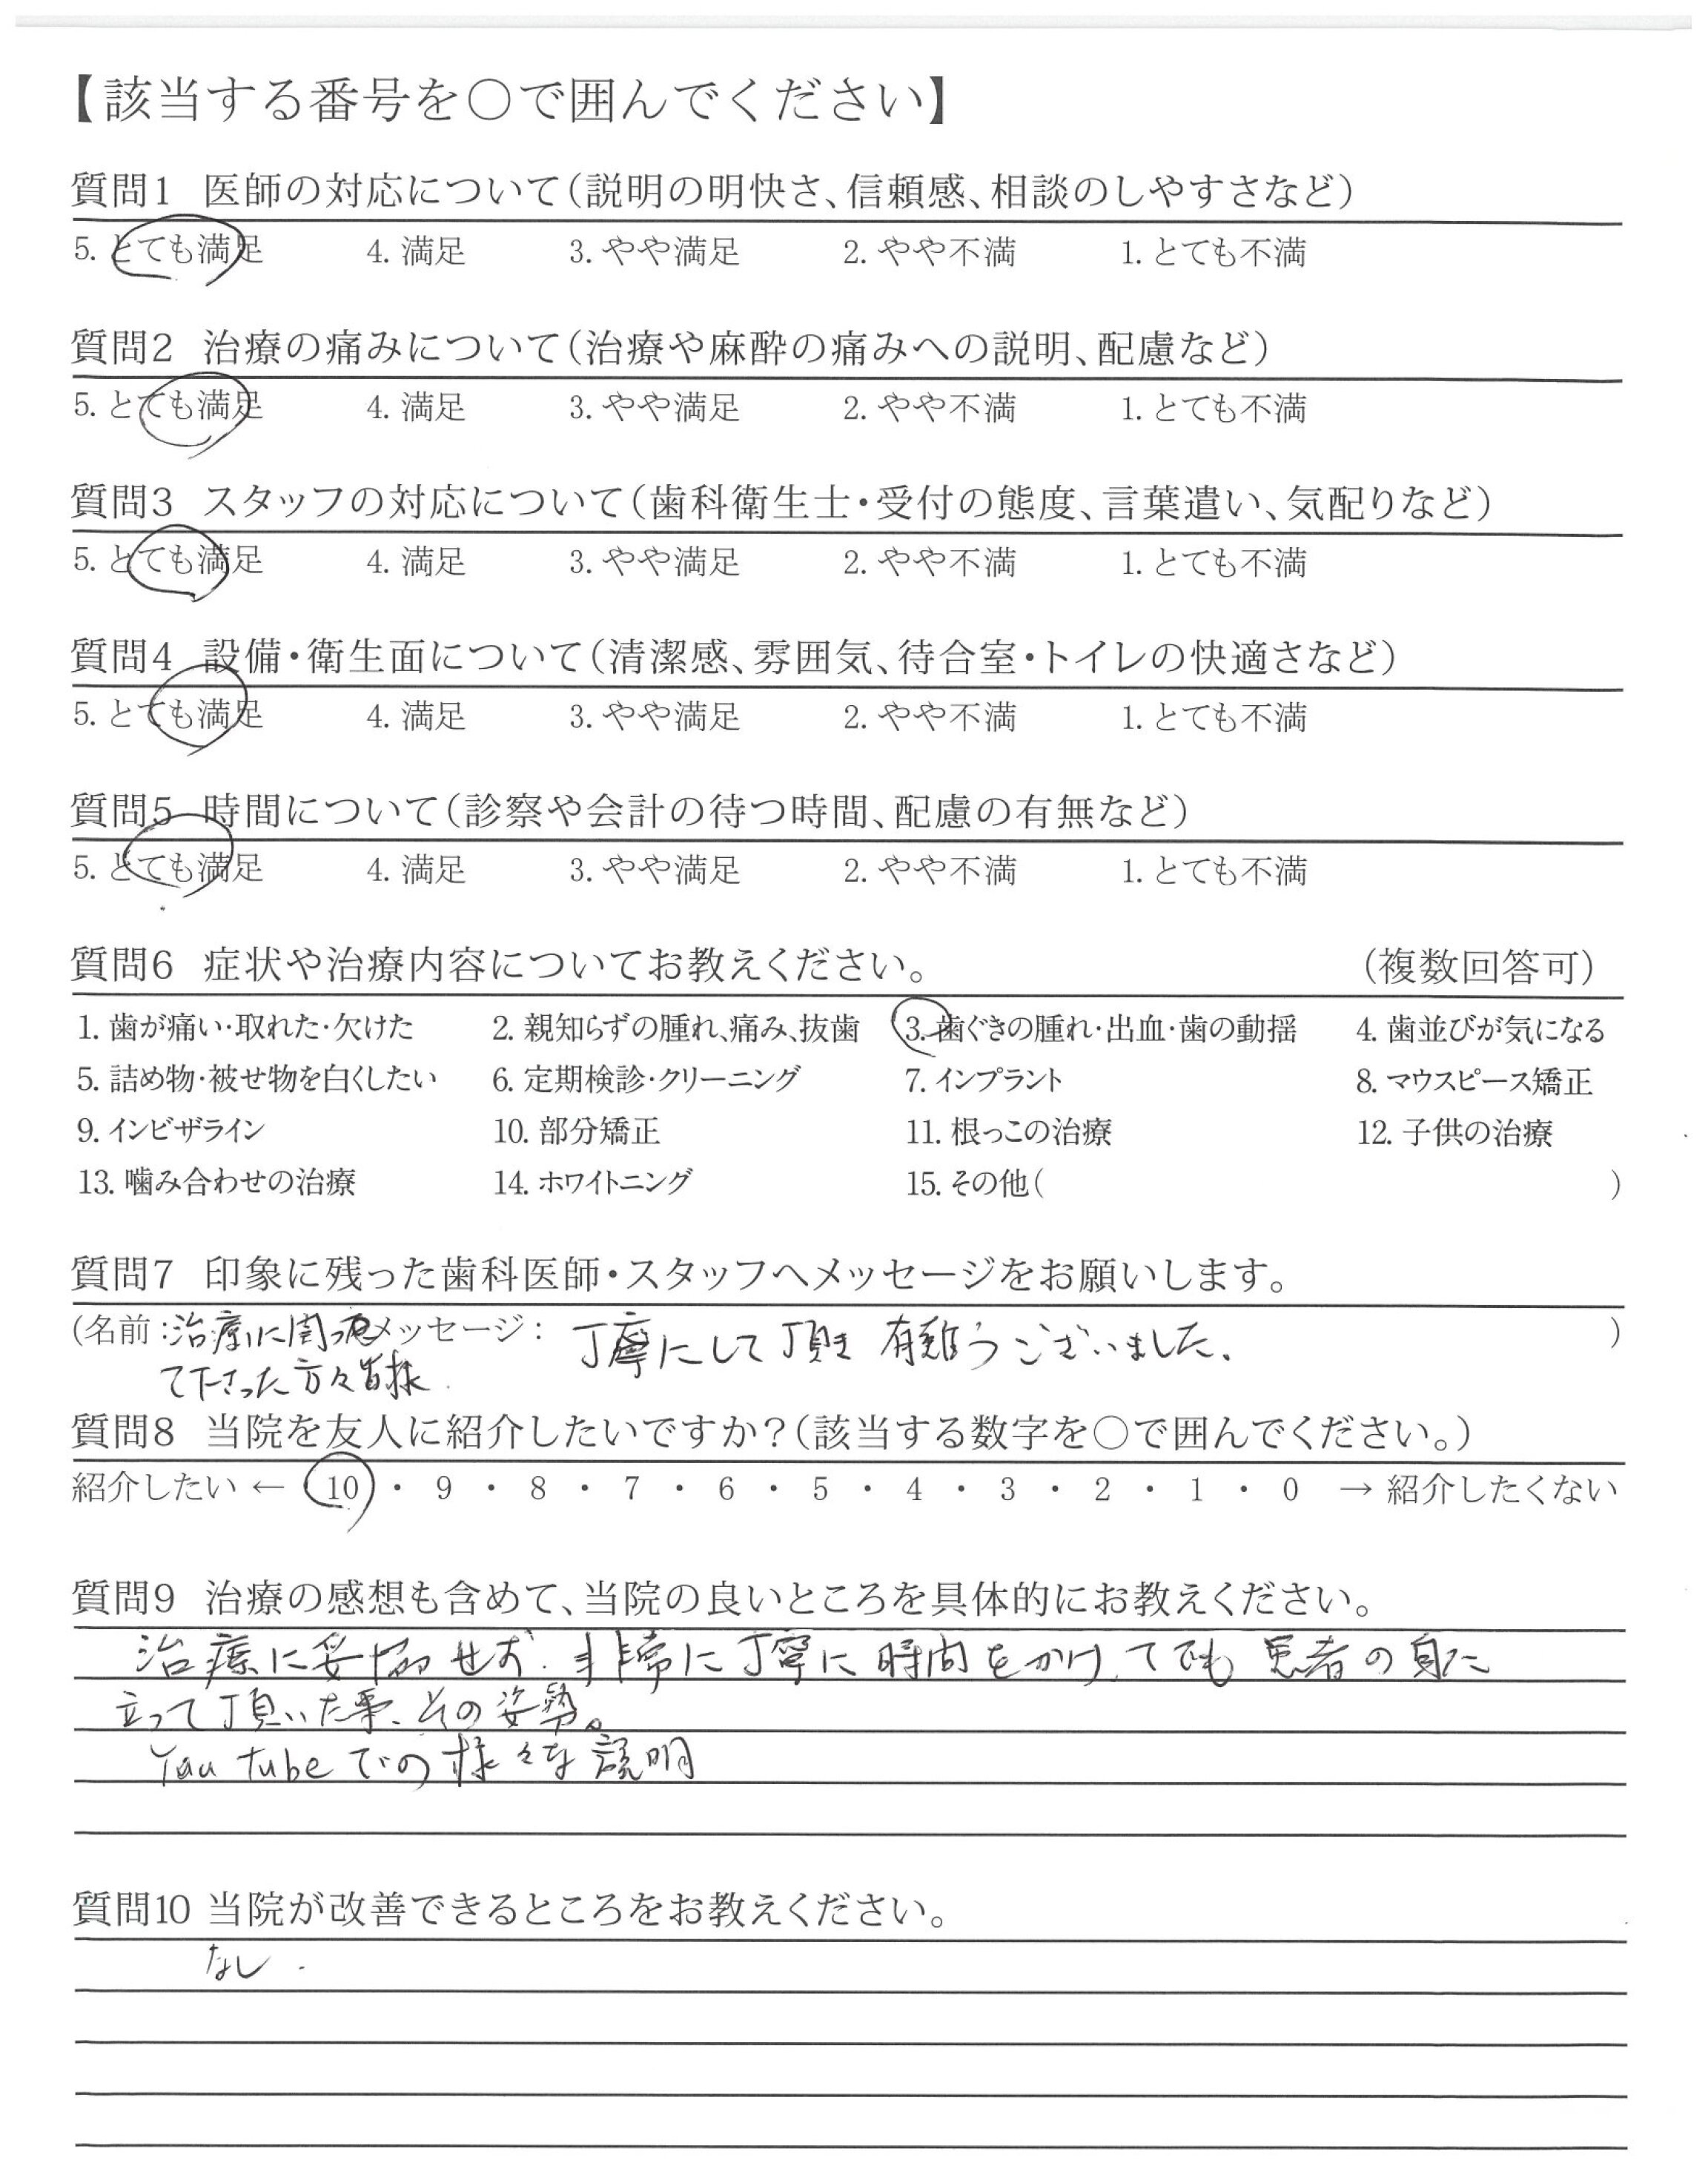 【該当する番号を○で囲んでください】
質問1 医師の対応について(説明の明快さ、信頼感、相談のしやすさなど)
5. とても満足 4. 満足 3. やや満足 2. やや不満 1. とても不満
質問2 治療の痛みについて(治療や麻酔の痛みへの説明、配慮など)
5. とても満足 4. 満足 3. やや満足 2. やや不満 1. とても不満
質問3 スタッフの対応について(歯科衛生士・受付の態度、言葉遣い、気配りなど)
5. とても満足 4. 満足 3. やや満足 2. やや不満 1. とても不満
質問4 設備・衛生面について(清潔感、雰囲気、待合室・トイレの快適さなど)
5. とても満足 4. 満足 3. やや満足 2. やや不満 1. とても不満
質問5 時間について(診察や会計の待つ時間、配慮の有無など)
5. とても満足 4. 満足 3. やや満足 2. やや不満 1. とても不満
質問6 症状や治療内容についてお教えください。 (複数回答可)
1. 歯が痛い・取れた・欠けた 2. 親知らずの腫れ、痛み、抜歯 3. 歯ぐきの腫れ・出血・歯の動揺 4. 歯並びが気になる
5. 詰め物・被せ物を白くしたい 6. 定期検診・クリーニング 7. インプラント 8. マウスピース矯正
9. インビザライン 10. 部分矯正 11. 根っこの治療 12. 子供の治療
13. 噛み合わせの治療 14. ホワイトニング 15. その他( )
質問7 印象に残った歯科医師・スタッフへメッセージをお願いします。
(名前:治療に関っ メッセージ: 丁寧にして頂き 有難うございました。 )
て下さった方々皆様
質問8 当院を友人に紹介したいですか?(該当する数字を○で囲んでください。)
紹介したい ← 10 ・ 9 ・ 8 ・ 7 ・ 6 ・ 5 ・ 4 ・ 3 ・ 2 ・ 1 ・ 0 → 紹介したくない
質問9 治療の感想も含めて、当院の良いところを具体的にお教えください。
治療に妥協せず、非常に丁寧に時間をかけてでも 患者の身に
立って頂いた事、その姿勢。
You tubeでの様々な説明
質問10 当院が改善できるところをお教えください。
なし.